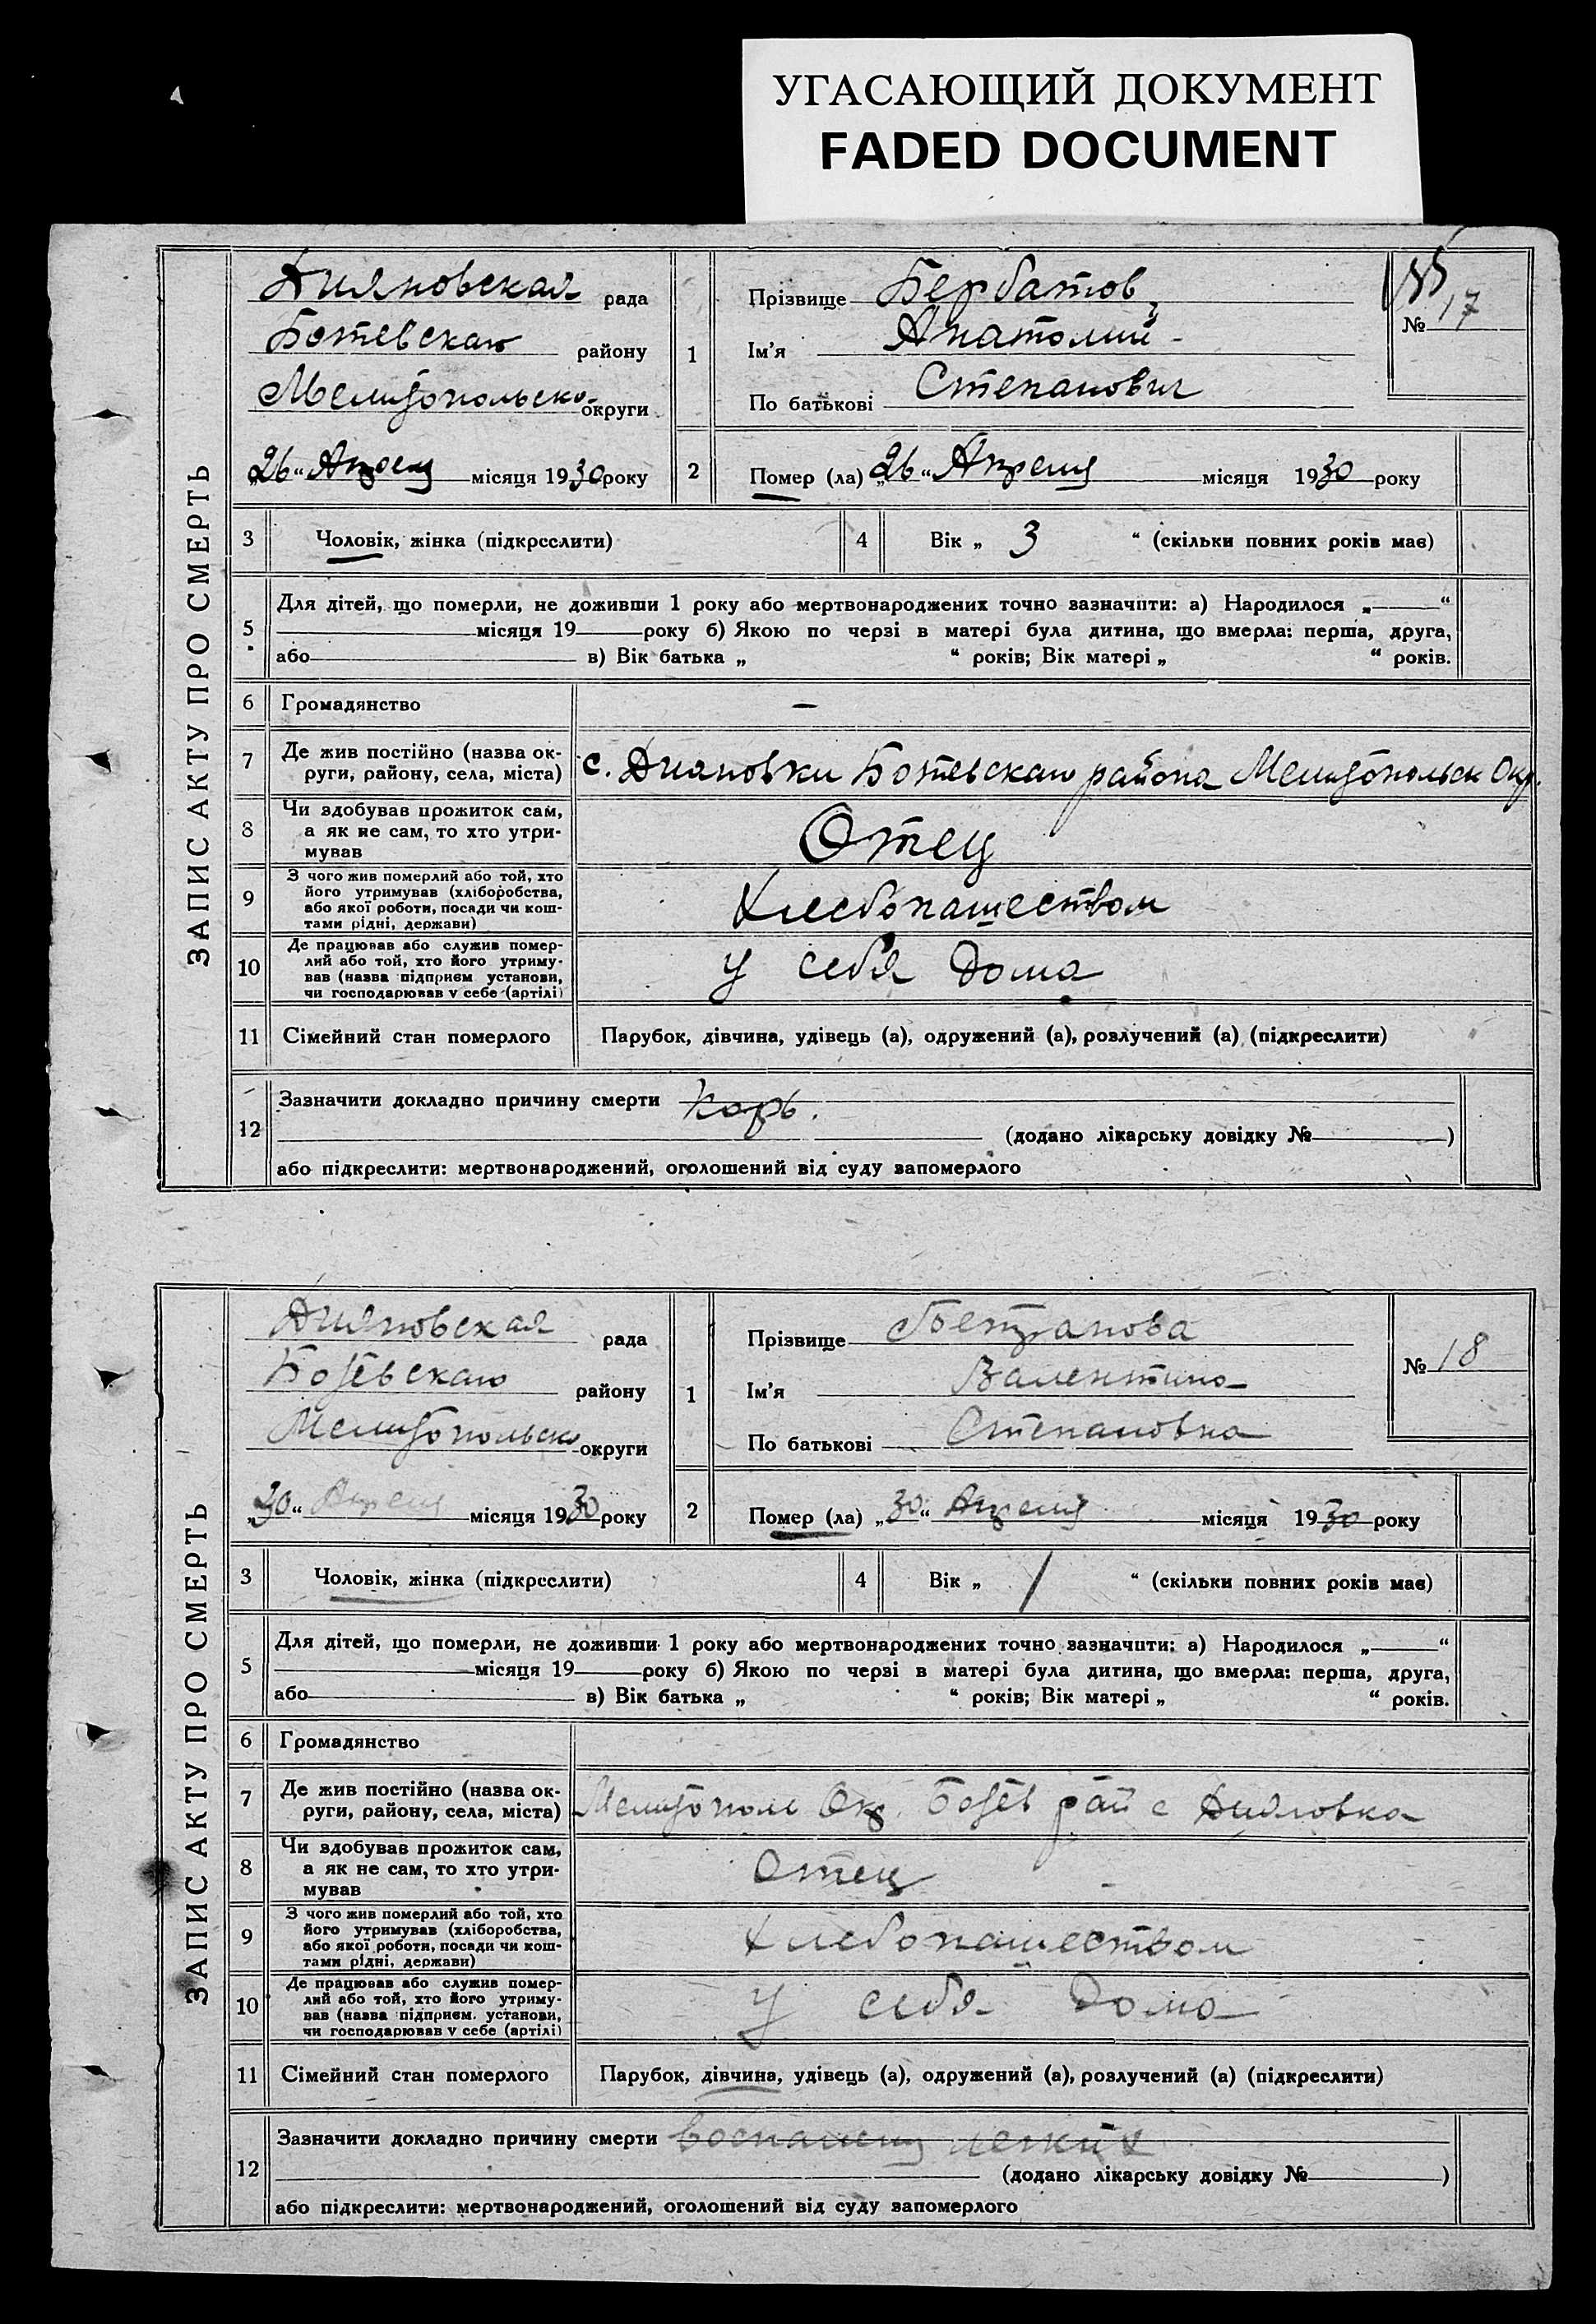 УГАСАЮЩИЙ ДОКУМЕНТ
FADED DOCUMENT
ЗАПИС АКТУ ПРО СМЕРТЬ
Дияновская рада
Ботевскаго району
Мелитопольско округи
„26“ Апреля місяця 1930 року
1
Прізвище Бербатов
Ім'я Анатолий
По батькові Степанович
№ 17
2
Помер (ла) „26“ Апреля місяця 1930 року
3 Чоловік, жінка (підкреслити)
4 Вік „ 3 “ (скільки повних років має)
5
Для дітей, що померли, не доживши 1 року або мертвонароджених точно зазначити: а) Народилося „ “
місяця 19 року б) Якою по черзі в матері була дитина, що вмерла: перша, друга,
або в) Вік батька „ “ років; Вік матері „ “ років.
6 Громадянство —
7 Де жив постійно (назва ок-
руги, району, села, міста) с. Дияновки Ботевскаго района Мелитопольск Окр.
8 Чи здобував прожиток сам,
а як не сам, то хто утри-
мував Отец
9 З чого жив померлий або той, хто
його утримував (хліборобства,
або якої роботи, посади чи кош-
тами рідні, держави) Хлебопашеством
10 Де працював або служив помер-
лий або той, хто його утриму-
вав (назва підприєм установи,
чи господарював у себе (артілі) у себя дома
11 Сімейний стан померлого Парубок, дівчина, удівець (а), одружений (а), розлучений (а) (підкреслити)
12
Зазначити докладно причину смерти Корь.
(додано лікарську довідку № )
або підкреслити: мертвонароджений, оголошений від суду запомерлого
ЗАПИС АКТУ ПРО СМЕРТЬ
Дияновская рада
Ботевскаго району
Мелитопольско округи
„30“ Апреля місяця 1930 року
1
Прізвище
Ім'я Валентина
По батькові Степановна
№ 18
2
Помер (ла) „30“ Апреля місяця 1930 року
3 Чоловік, жінка (підкреслити)
4 Вік „ 1 “ (скільки повних років має)
5
Для дітей, що померли, не доживши 1 року або мертвонароджених точно зазначити: а) Народилося „ “
місяця 19 року б) Якою по черзі в матері була дитина, що вмерла: перша, друга,
або в) Вік батька „ “ років; Вік матері „ “ років.
6 Громадянство
7 Де жив постійно (назва ок-
руги, району, села, міста) Мелитопол Окр. Ботев рай с Дияновка
8 Чи здобував прожиток сам,
а як не сам, то хто утри-
мував Отец
9 З чого жив померлий або той, хто
його утримував (хліборобства,
або якої роботи, посади чи кош-
тами рідні, держави) Хлебопашеством
10 Де працював або служив помер-
лий або той, хто його утриму-
вав (назва підприєм. установи,
чи господарював у себе (артілі) у себя дома
11 Сімейний стан померлого Парубок, дівчина, удівець (а), одружений (а), розлучений (а) (підкреслити)
12
Зазначити докладно причину смерти Воспаления легких
(додано лікарську довідку № )
або підкреслити: мертвонароджений, оголошений від суду запомерлого